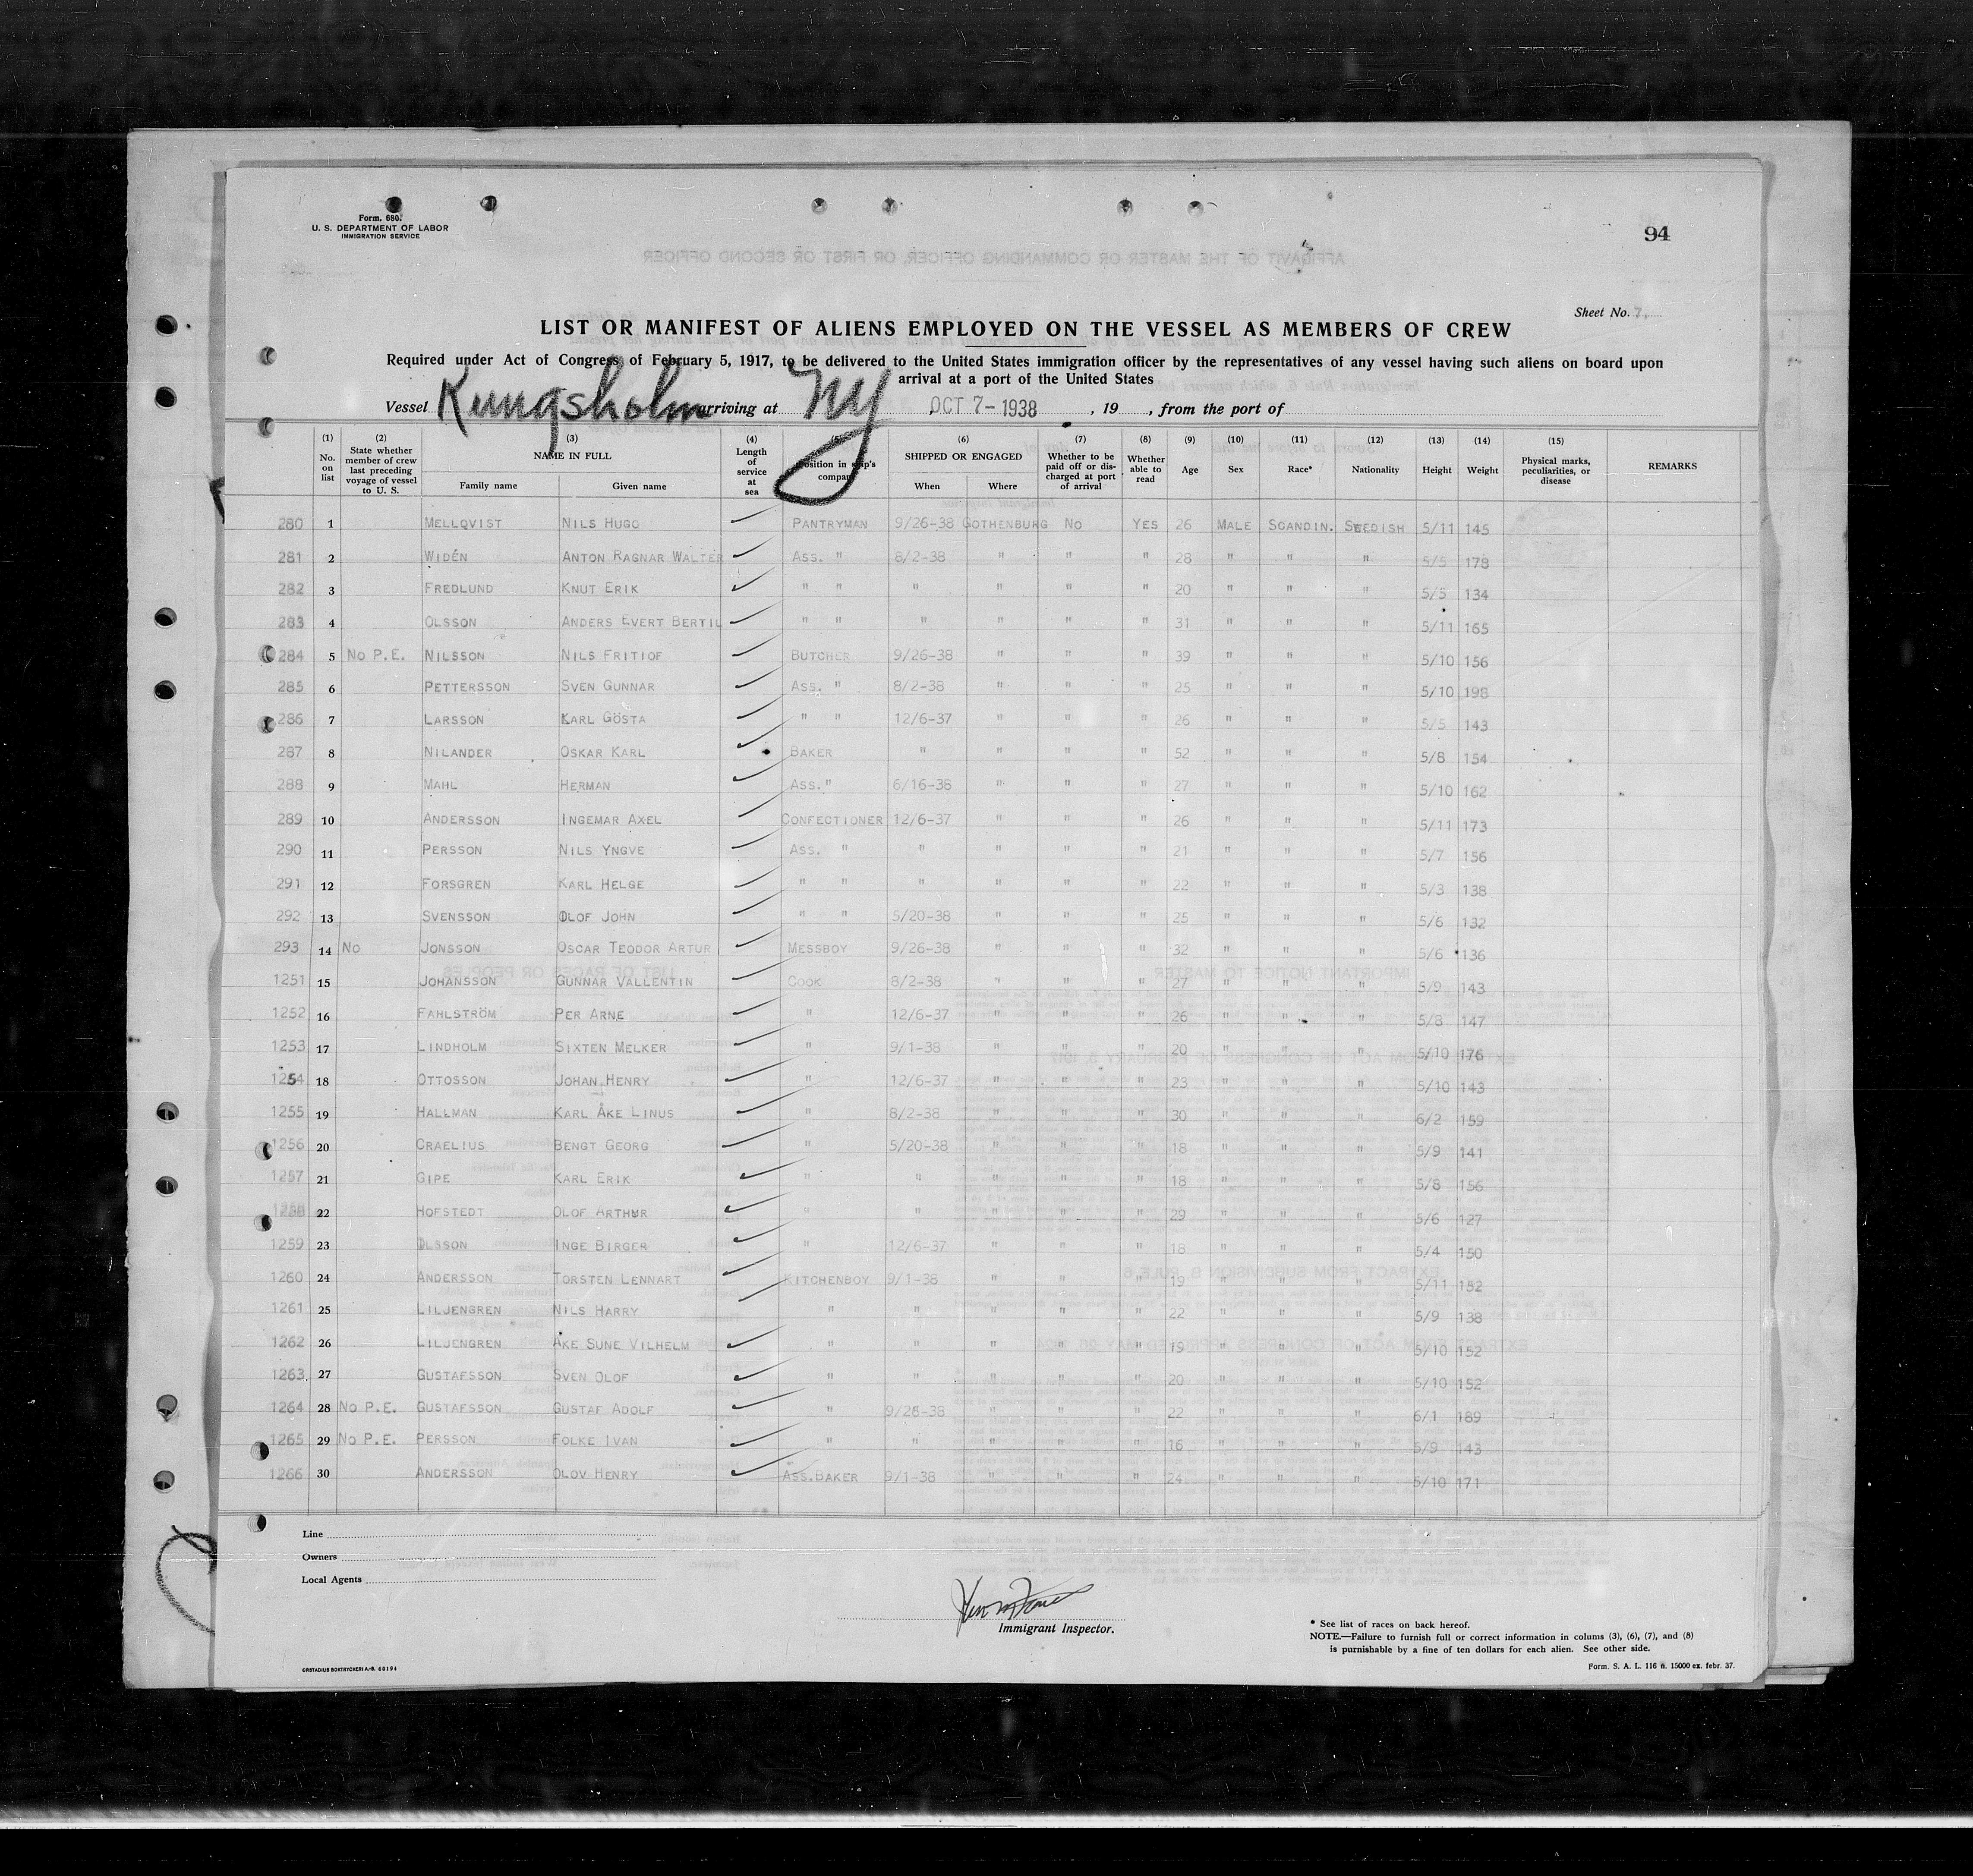 Form. 680.
U. S. DEPARTMENT OF LABOR
IMMIGRATION SERVICE
94
Sheet No. 7.
LIST OR MANIFEST OF ALIENS EMPLOYED ON THE VESSEL AS MEMBERS OF CREW
Required under Act of Congress of February 5, 1917, to be delivered to the United States immigration officer by the representatives of any vessel having such aliens on board upon
arrival at a port of the United States
Vessel Kungsholm arriving at NY OCT 7-1938, 19, from the port of
(1) No. on list (2) State whether member of crew last preceding voyage of vessel to U. S. (3) NAME IN FULL Family name Given name (4) Length of service at sea (5) Position in ship's company (6) SHIPPED OR ENGAGED When Where (7) Whether to be paid off or discharged at port of arrival (8) Whether able to read (9) Age (10) Sex (11) Race* (12) Nationality (13) Height (14) Weight (15) Physical marks, peculiarities, or disease REMARKS
280 1 MELLQVIST NILS HUGO PANTRYMAN 9/26-38 GOTHENBURG NO YES 26 MALE SCANDIN. SWEDISH 5/11 145
281 2 WIDÉN ANTON RAGNAR WALTER ASS. " 8/2-38 " " " 28 " " " 5/5 178
282 3 FREDLUND KNUT ERIK " " " " " " 20 " " " 5/5 134
283 4 OLSSON ANDERS EVERT BERTIL " " " " " " 31 " " " 5/11 165
284 5 NO P.E. NILSSON NILS FRITIOF BUTCHER 9/26-38 " " " 39 " " " 5/10 156
285 6 PETTERSSON SVEN GUNNAR ASS. " 8/2-38 " " " 25 " " " 5/10 198
286 7 LARSSON KARL GÖSTA " " 12/6-37 " " " 26 " " " 5/5 143
287 8 NILANDER OSKAR KARL BAKER " " " " 52 " " " 5/8 154
288 9 MAHL HERMAN ASS. " 6/16-38 " " " 27 " " " 5/10 162
289 10 ANDERSSON INGEMAR AXEL CONFECTIONER 12/6-37 " " " 26 " " " 5/11 173
290 11 PERSSON NILS YNGVE ASS. " " " " " 21 " " " 5/7 156
291 12 FORSGREN KARL HELGE " " " " " " 22 " " " 5/3 138
292 13 SVENSSON OLOF JOHN " " 5/20-38 " " " 25 " " " 5/6 132
293 14 NO JONSSON OSCAR TEODOR ARTUR MESSBOY 9/26-38 " " " 32 " " " 5/6 136
1251 15 JOHANSSON GUNNAR VALLENTIN COOK 8/2-38 " " " 27 " " " 5/9 143
1252 16 FAHLSTRÖM PER ARNE " 12/6-37 " " " 26 " " " 5/8 147
1253 17 LINDHOLM SIXTEN MELKER " 9/1-38 " " " 20 " " " 5/10 176
1254 18 OTTOSSON JOHAN HENRY " 12/6-37 " " " 23 " " " 5/10 143
1255 19 HALLMAN KARL ÅKE LINUS " 8/2-38 " " " 30 " " " 6/2 159
1256 20 CRAELIUS BENGT GEORG " 5/20-38 " " " 18 " " " 5/9 141
1257 21 GIPE KARL ERIK " " " " " 18 " " " 5/8 156
1258 22 HOFSTEDT OLOF ARTHUR " " " " " 29 " " " 5/6 127
1259 23 OLSSON INGE BIRGER " 12/6-37 " " " 18 " " " 5/4 150
1260 24 ANDERSSON TORSTEN LENNART KITCHENBOY 9/1-38 " " " 19 " " " 5/11 152
1261 25 LILJENGREN NILS HARRY " " " " " 22 " " " 5/9 138
1262 26 LILJENGREN ÅKE SUNE VILHELM " " " " " 19 " " " 5/10 152
1263 27 GUSTAFSSON SVEN OLOF " " " " " 20 " " " 5/10 152
1264 28 NO P.E. GUSTAFSSON GUSTAF ADOLF " 9/26-38 " " " 22 " " " 6/1 189
1265 29 NO P.E. PERSSON FOLKE IVAN " " " " " 16 " " " 5/9 143
1266 30 ANDERSSON OLOV HENRY ASS. BAKER 9/1-38 " " " 24 " " " 5/10 171
Line
Owners
Local Agents
Immigrant Inspector.
* See list of races on back hereof.
NOTE.—Failure to furnish full or correct information in colums (3), (6), (7), and (8)
is purnishable by a fine of ten dollars for each alien. See other side.
ORSTADIUS BOKTRYCKERI A.-B. 60194
Form. S. A. L. 116 n. 15000 ex. febr. 37.